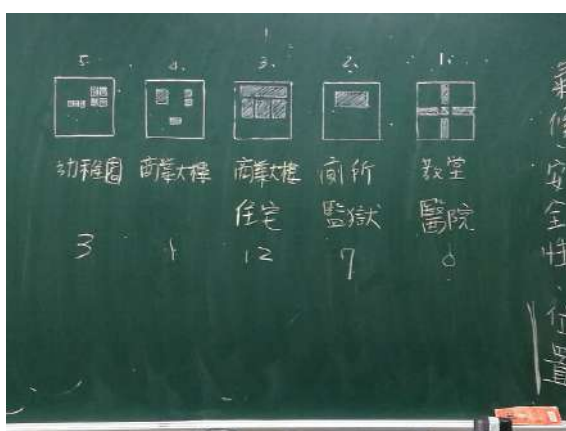 5. 4. 3. 2. 1.
幼稚園 商業大樓 商業大樓 廁所 教堂
住宅 監獄 醫院
3 1 12 7 0
氣候、安全性、位置